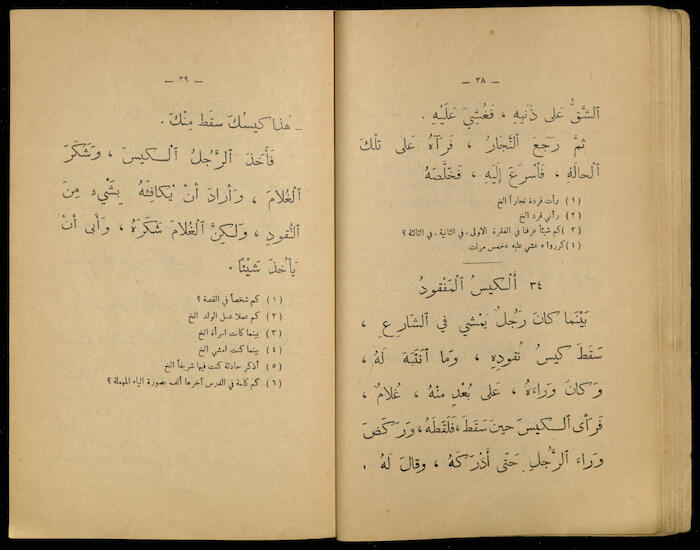 — ٣٨ —
الشَّقُّ عَلَى ذَنَبِهِ ، فَغُشِيَ عَلَيْهِ .
ثُمَّ رَجَعَ النَّجَارُ ، فَرَآهُ عَلَى تِلْكَ
الْحَالَةِ ، فَأَسْرَعَ إِلَيْهِ ، فَخَلَّصَهُ
(١) رأت قردة نجاراً الخ
(٢) رأني قرد الخ
(٣) كم شيئاً عرفنا في الفقرة الاولى ، في الثانية ، في الثالثة ؟
(٤) كرروا « غشي عليه » خمس مرات
٣٤ أَلْكِيسُ الْمَفْقُودُ
بَيْنَما كانَ رَجُلٌ يَمْشي في الشَّارِعِ ،
سَقَطَ كِيسُ نُقودِهِ ، وَما انْتَبَهَ لَهُ ،
وَكانَ وَراءَهُ ، عَلَى بُعْدٍ مِنْهُ ، غُلامٌ ،
فَرَأى الْكِيسَ حينَ سَقَطَ ، فَلَقَطَهُ ، وَرَكَضَ
وَراءَ الرَّجُلِ حَتَّى أَدْرَكَهُ ، وَقالَ لَهُ .
— ٣٩ —
ـ هٰذا كيسُكَ سَقَطَ مِنْكَ .
فَأَخَذَ الرَّجُلُ الْكيسَ ، وَشَكَرَ
الْغُلامَ ، وَأَرادَ أَنْ يُكافِئَهُ بِشَيْءٍ مِنَ
النُّقودِ ، وَلٰكِنَّ الْغُلامَ شَكَرَهُ ، وَأَبى أَنْ
يَأْخُذَ شَيْئًا .
(١) كم شخصاً في القصة ؟
(٢) كم عملا عمل الولد الخ
(٣) بينما كانت امرأة الخ
(٤) بينما كنت امشي الخ
(٥) أذكر حادثة كنت فيها شريفاً الخ
(٦) كم كلمة في الدرس آخرها ألف بصورة الياء المهملة ؟